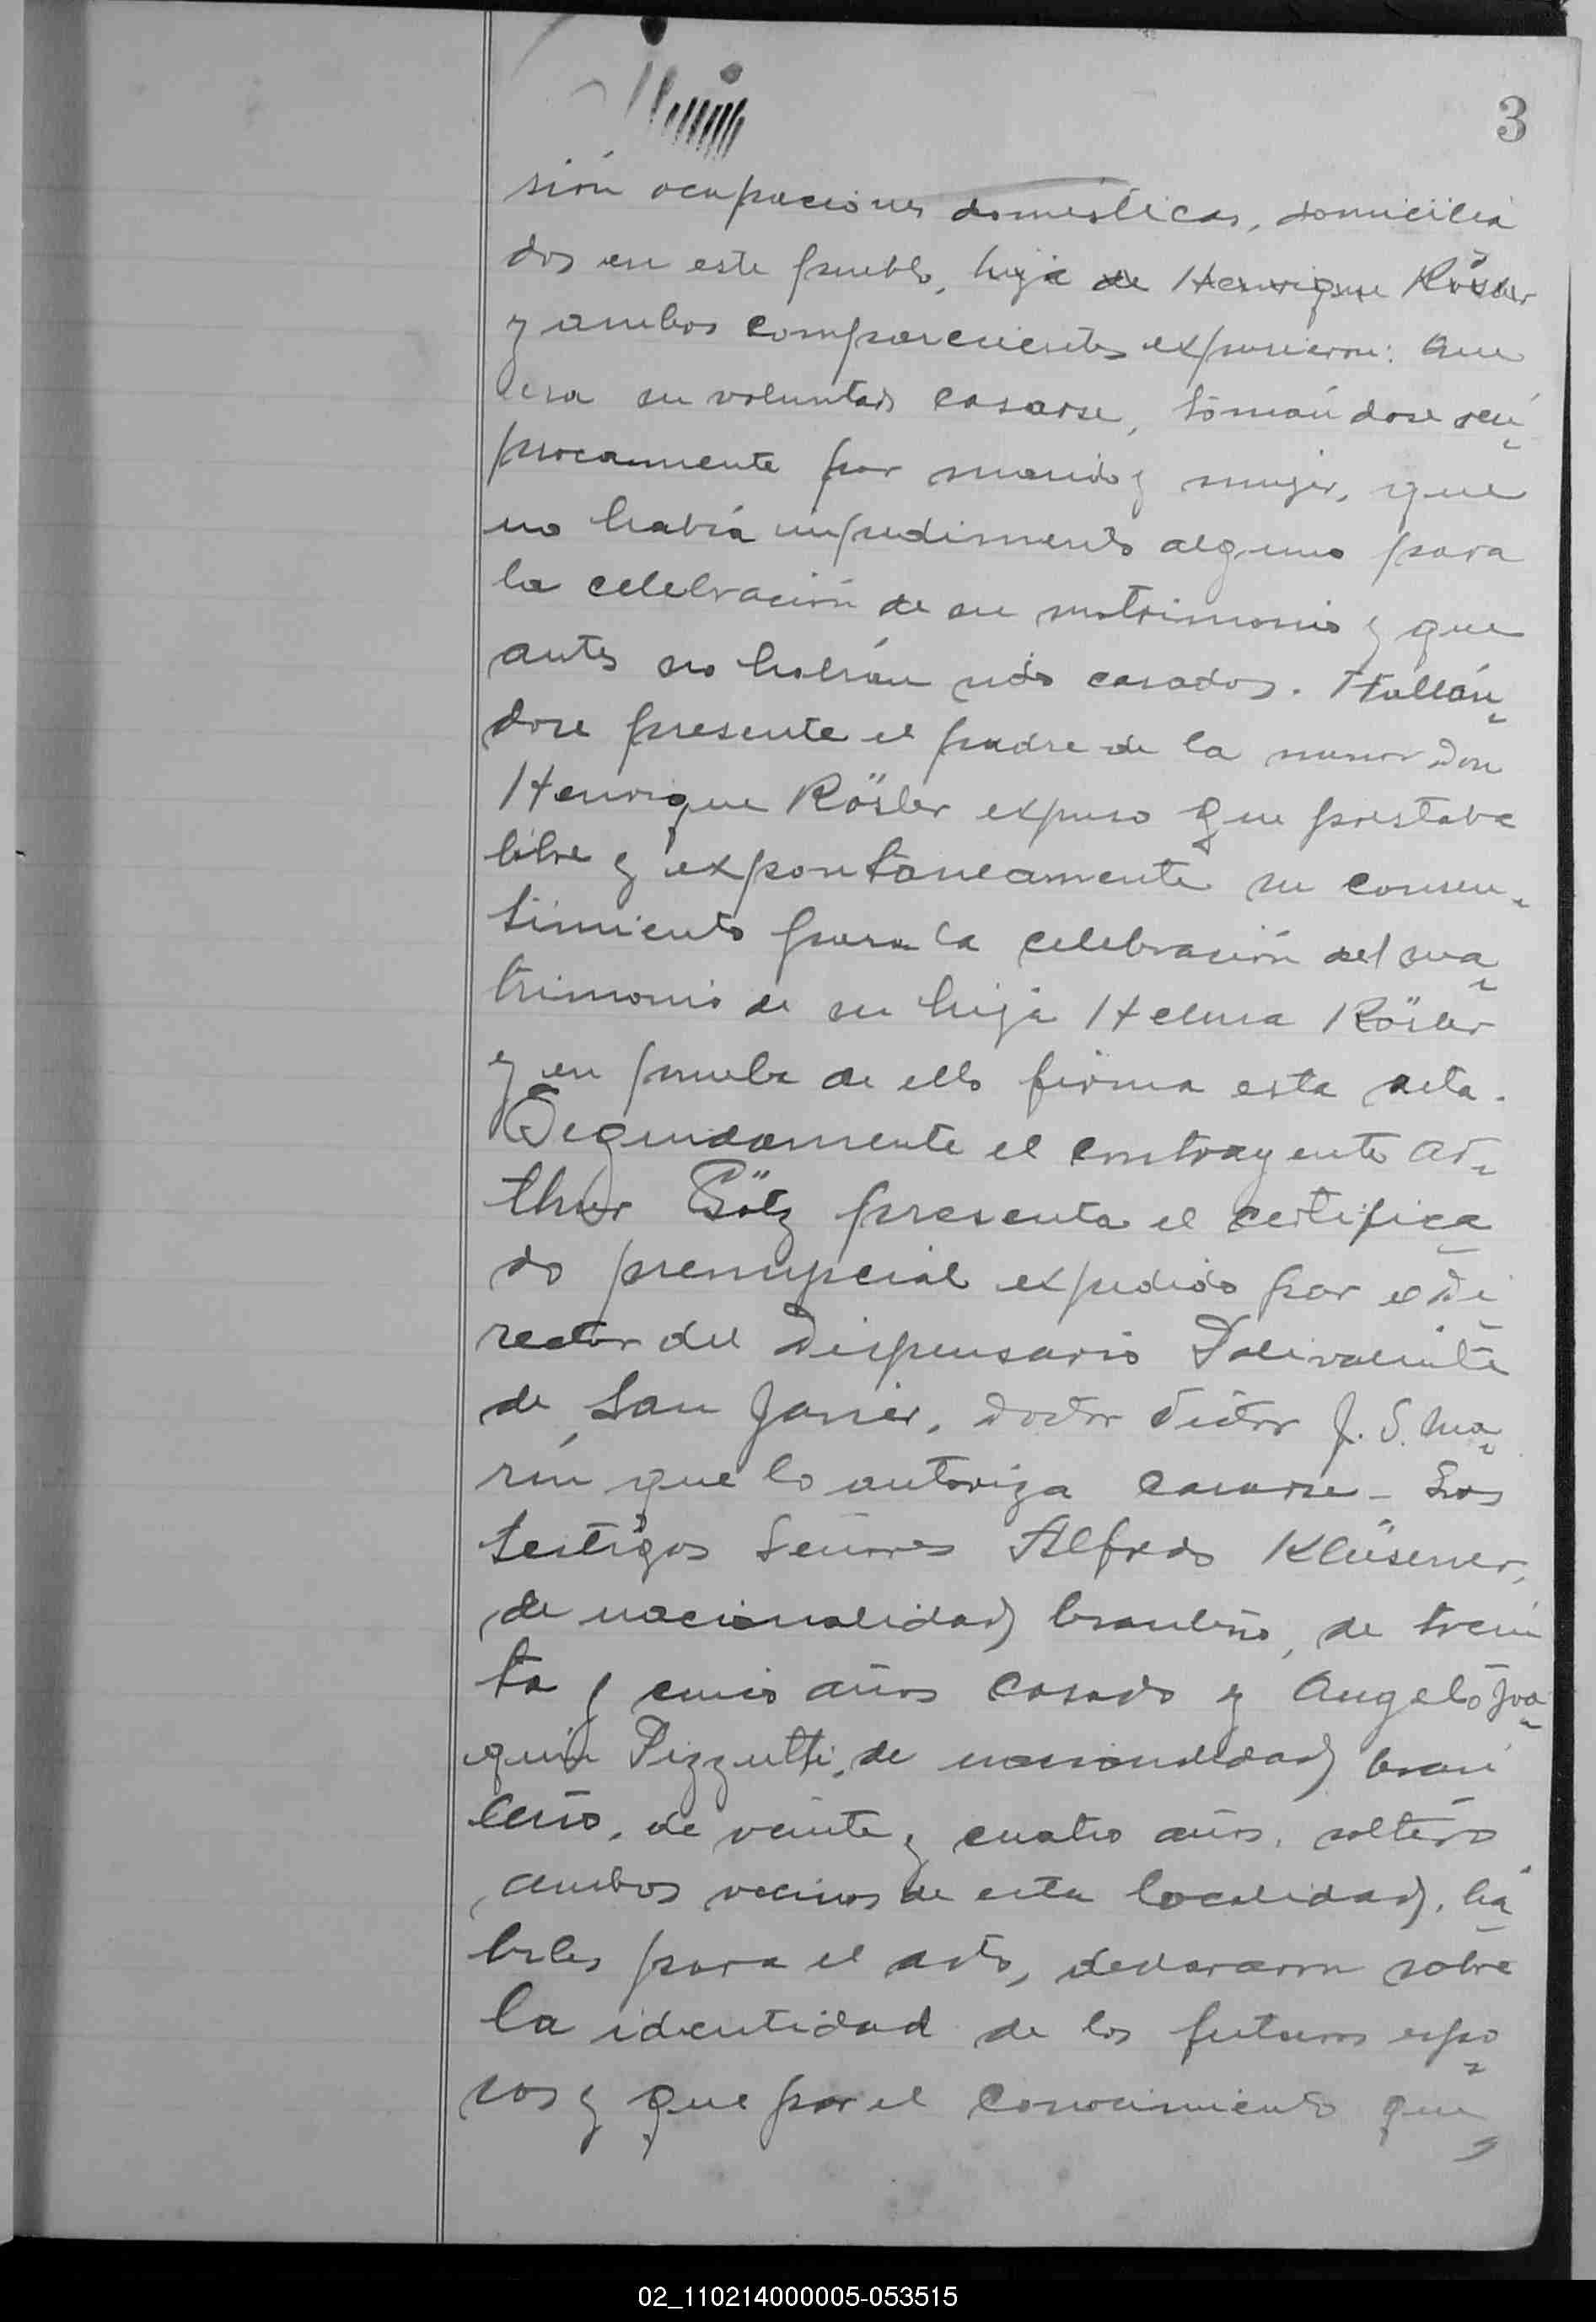 3
sión ocupaciones domésticas, domicilia
dos en este pueblo, hija de Henrique Rösler
y ambos comparecientes expusieron: Que
era su voluntad casarse, tomándose recí-
procamente por marido y mujer, que
no había impedimento alguno para
la celebración de su matrimonio y que
antes no habían sido casados. Hallán-
dose presente el padre de la menor Don
Henrique Rösler expuso que prestaba
libre y expontaneamente su consen-
timiento para la celebración del ma-
trimonio de su hija Helma Rösler
y en prueba de ello firma esta acta.
Seguidamente el contrayente Ar-
thur Götz presenta el certifica-
do prenupcial expedido por el Di-
rector del Dispensario Polivalente
de San Javier, Doctor Victor J. S. Ma-
rín que lo autoriza casarse - Los
testigos Señores Alfredo Klüsener,
de nacionalidad brasileño, de trein
ta y cinco años casado y Angelo Joa-
quin Pizzutti, de nacionalidad brasi
leño, de veinte y cuatro años, soltero
ambos vecinos de esta localidad, há-
biles para el acto, declararon sobre
la identidad de los futuros espo-
sos y que por el conocimiento que
02_110214000005-053515